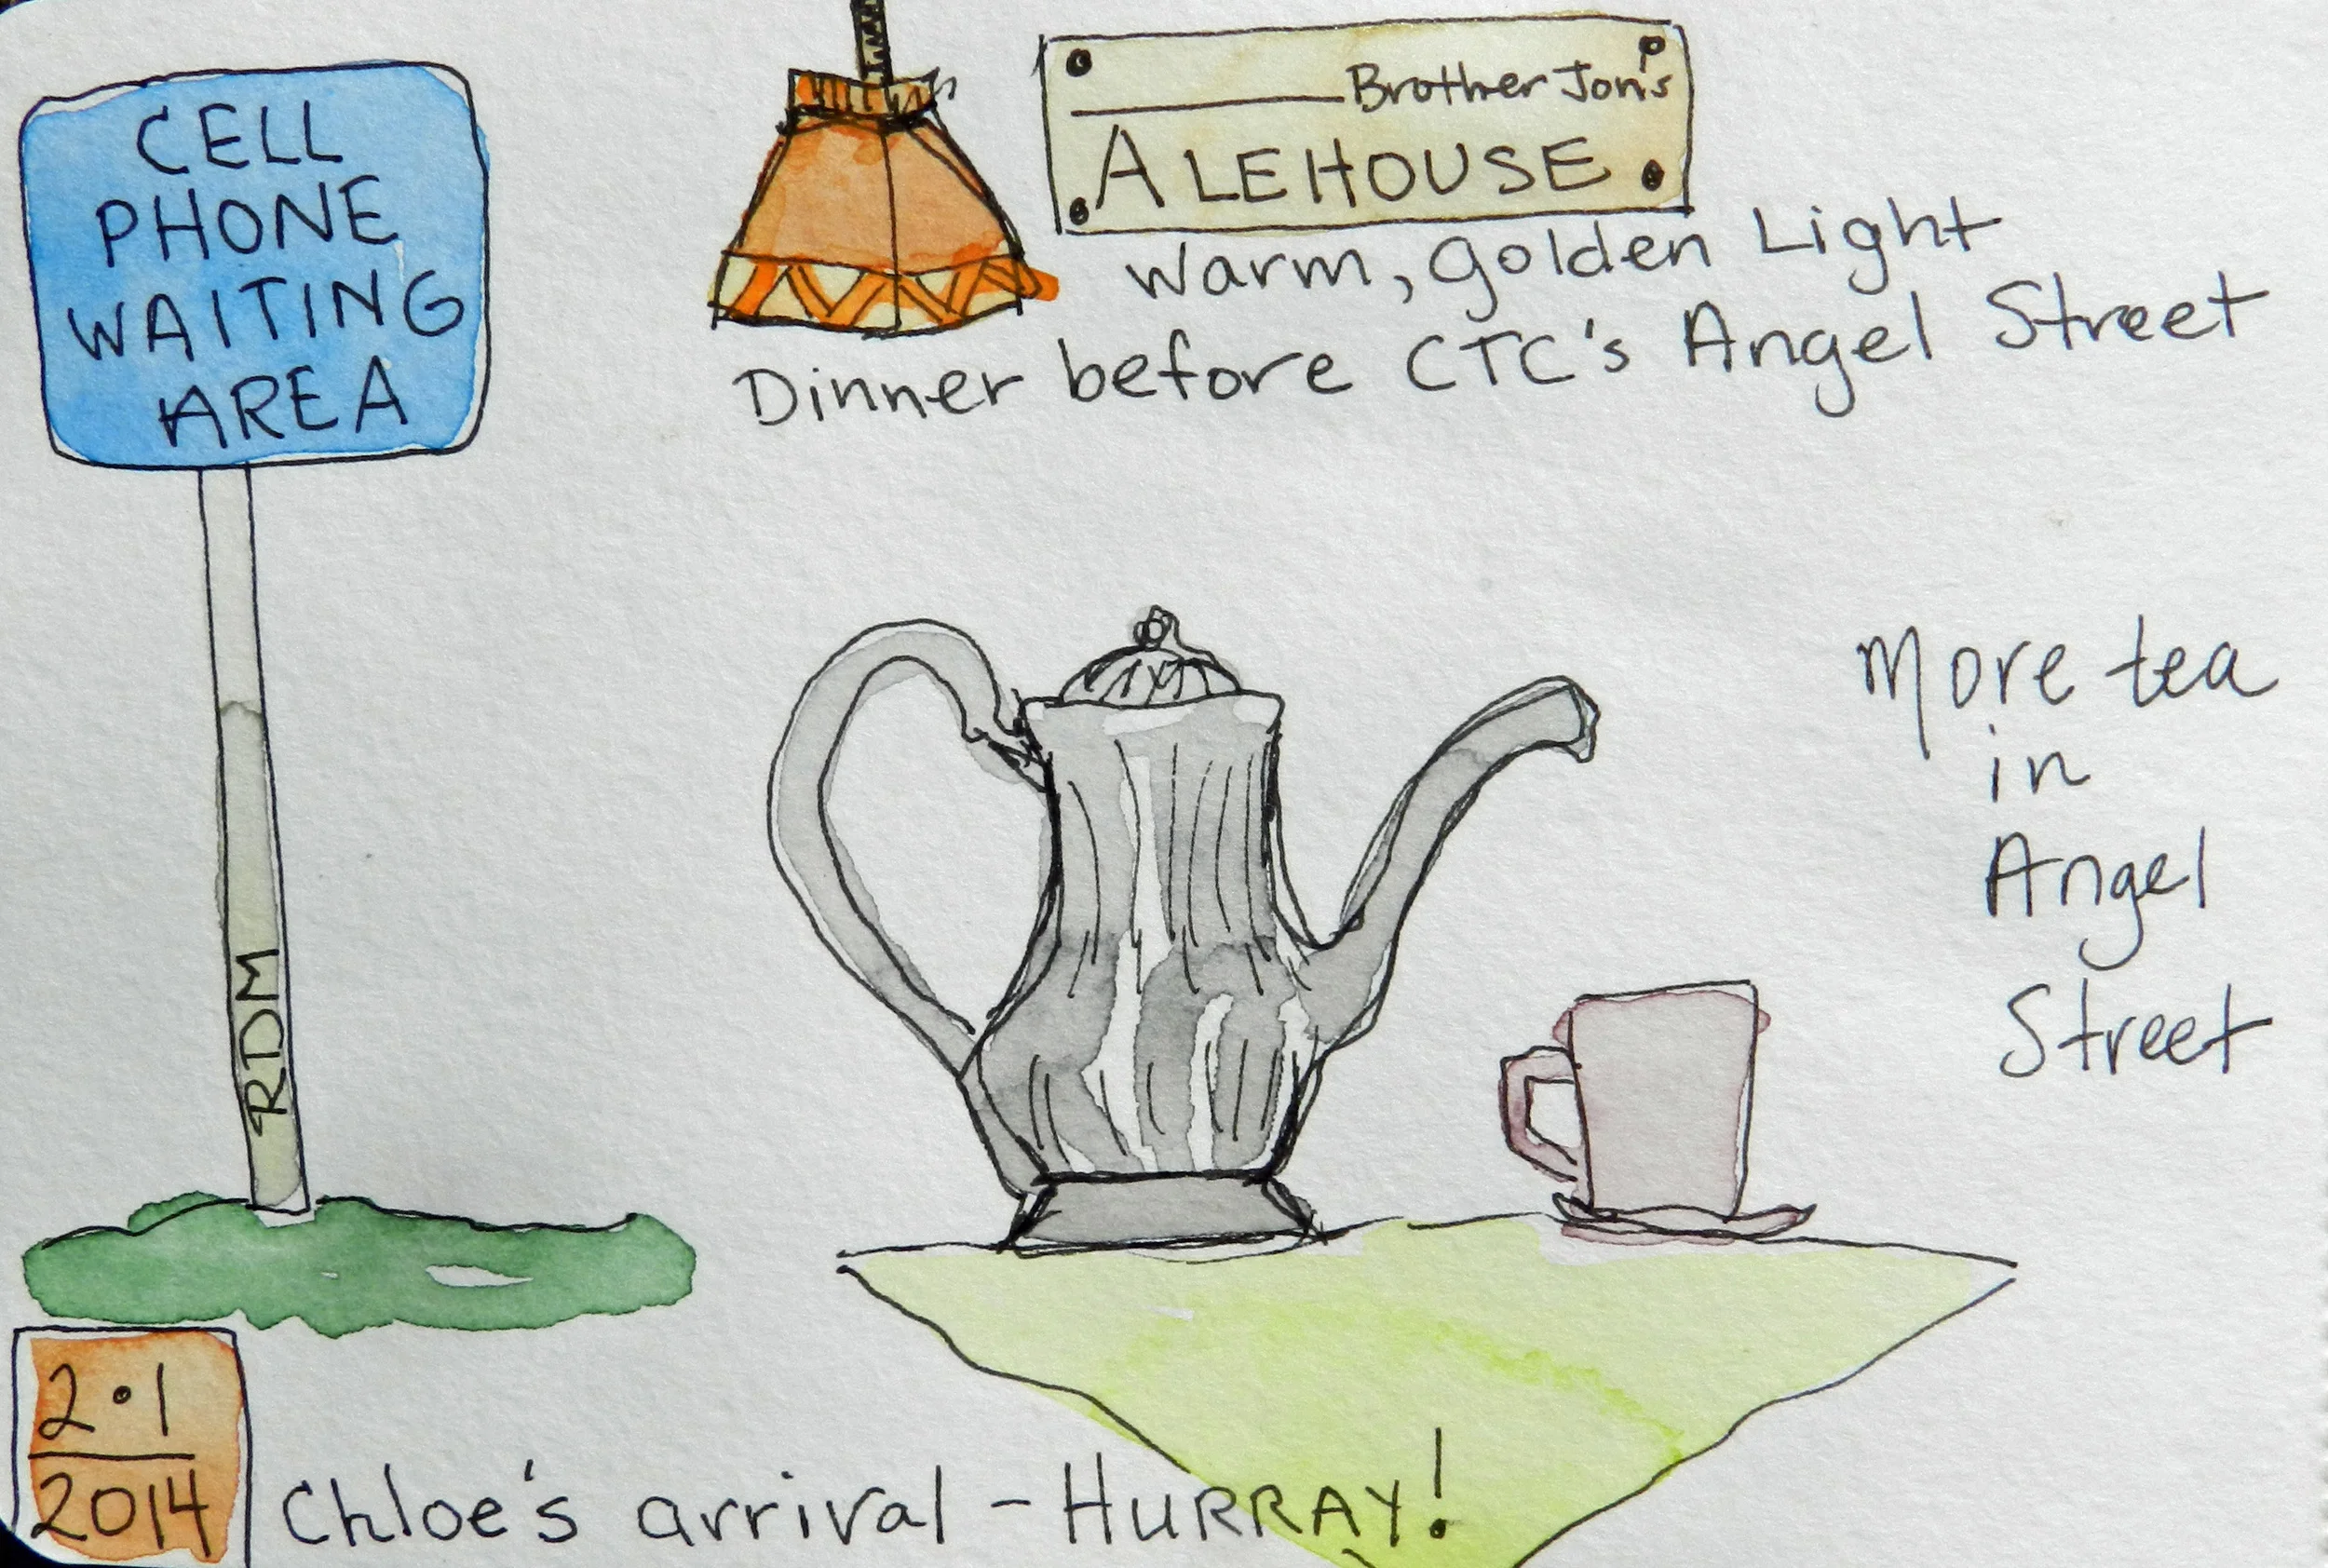 CELL
PHONE
WAITING
AREA
RDM
Brother Jon's
ALEHOUSE
Warm, golden Light
Dinner before CTC's Angel Street
More tea
in
Angel
Street
2•1
2014
Chloe's arrival - HURRAY!